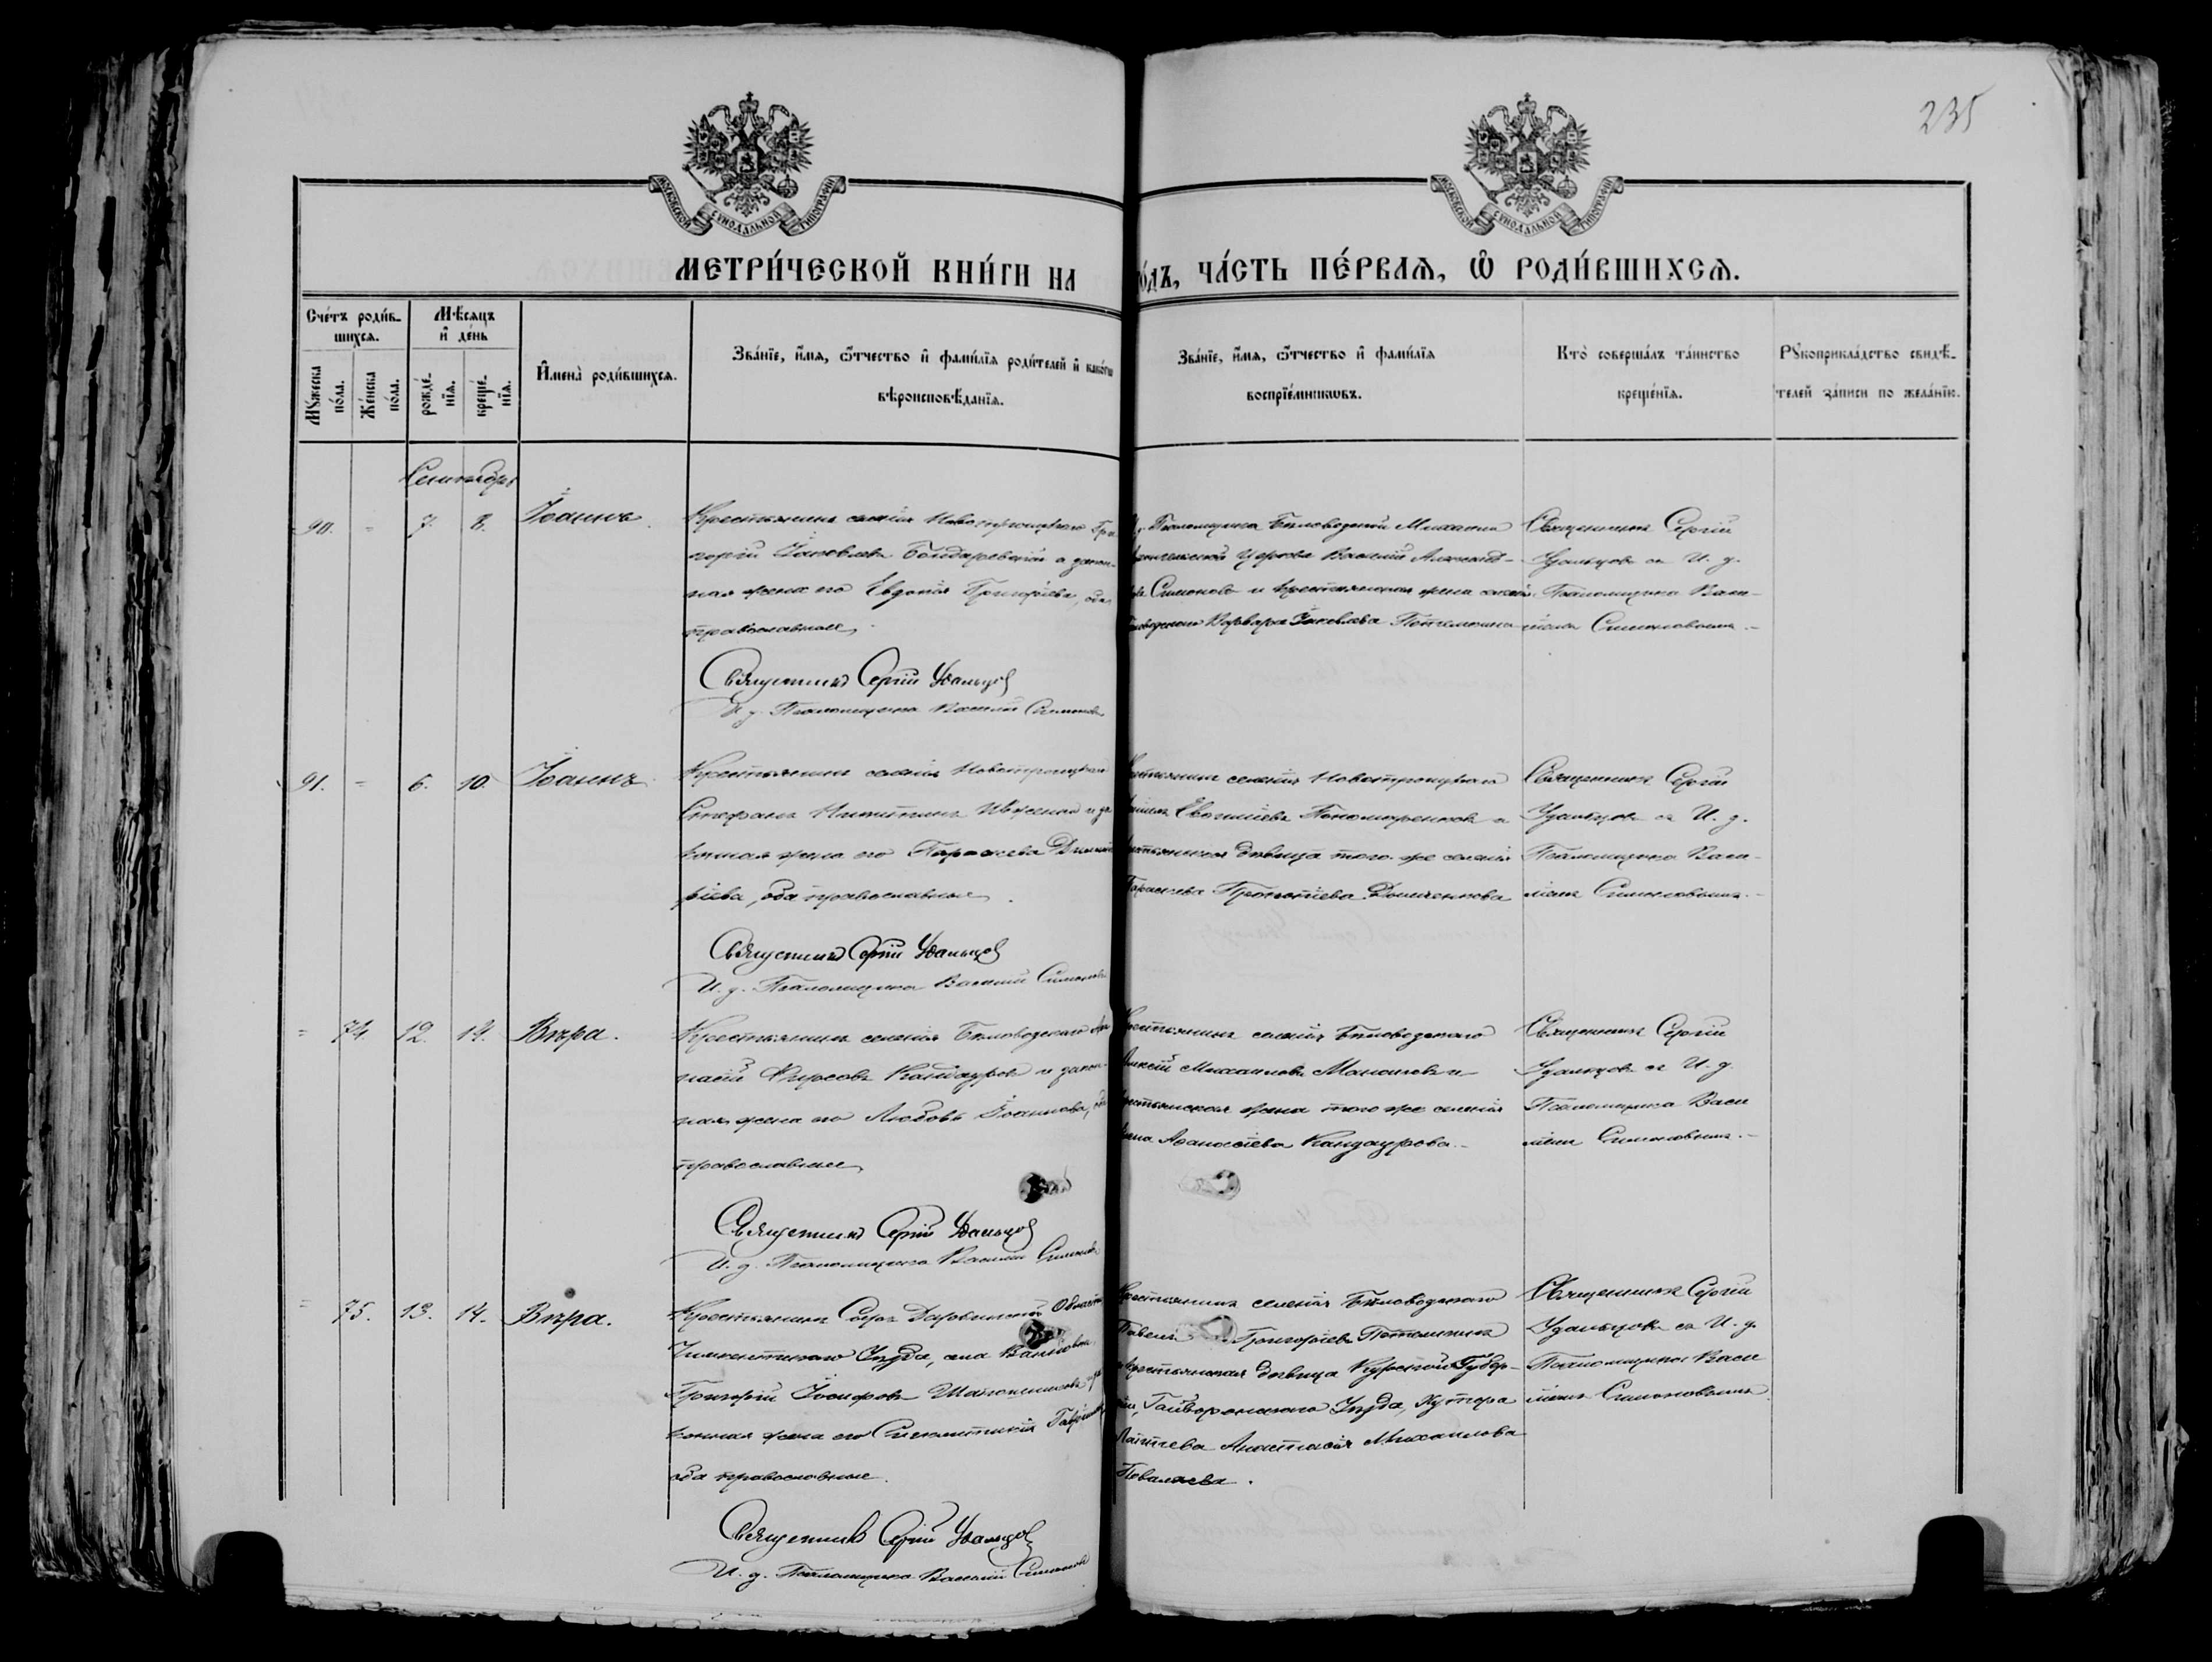 235
МОСКОВСКОЙ СУНОДАЛЬНОЙ ТИПОГРАФІИ
МОСКОВСКОЙ СУНОДАЛЬНОЙ ТИПОГРАФІИ
МЕТРИ́ЧЕСКОЙ КНИ́ГИ НА
О́ДЪ, ЧА́СТЬ ПЕ́РВАѦ, Ѡ РОДИ́ВШИХСѦ.
Сче́тъ роди́в-
шихсѧ.
Мꙋ́жеска
по́ла.
Же́нска
по́ла.
Мѣ́сѧцъ
и де́нь
рожде́-
нїѧ.
креще́-
нїѧ.
Имена̀ роди́вшихсѧ.
Зва́нїе, и́мѧ, ѻ́тчество и фами́лїѧ роди́телей и како́гѡ
вѣроисповѣ́данїѧ.
Зва́нїе, и́мѧ, ѻ́тчество и фами́лїѧ
воспрїе́мникѡвъ.
Кто̀ соверша́лъ та́инство
креще́нїѧ.
Рꙋкоприкла́дство свидѣ́-
телей за́писи по жела́нїю.
Сентябрь
90. = 7. 8. Іоаннъ.
Крестьянинъ селенія Новотроицкаго Гри
горій Іаковлевъ Бондаревскій и закон-
ная жена его Евдокія Григоріева, оба
православные.
Священникъ Сергій Удальцовъ
И. д. Псаломщика Василій Симоновъ
Псаломщика Бѣловодской Михаило
Архангельской церкви Василій Александ-
Симоновъ и крестьянская жена селенія
Варвара Іаковлева Потемкина
Священникъ Сергій
Удальцовъ съ И. д.
Псаломщика Васи-
ліемъ Симоновымъ.-
91. = 6. 10. Іоаннъ
Крестьянинъ селенія Новотроицкаго
Стефанъ Никитинъ и за
конная жена его Параскева Димит
ріева, оба православные.
Священникъ Сергій Удальцовъ
И. д. Псаломщика Василій Симоновъ
Крестьянинъ селенія Новотроицкаго
Пономаренковъ и
крестьянская дѣвица того-же селенія
Параскева Прокопіева
Священникъ Сергій
Удальцовъ съ И. д.
Псаломщика Васи-
ліемъ Симоновымъ.-
= 74. 12. 14. Вѣра.
Крестьянинъ селенія Бѣловодскаго
Фирсовъ Кандауровъ и закон-
ная жена его Любовь Іоаннова, оба
православные
Священникъ Сергій Удальцовъ
И. д. Псаломщика Василій Симоновъ
Крестьянинъ селенія Бѣловодскаго
Алексій Михаиловъ и
крестьянская жена того же селенія
Аѳанасіева Кандаурова.-
Священникъ Сергій
Удальцовъ съ И. д.
Псаломщика Васи
ліемъ Симоновымъ.-
= 75. 13. 14. Вѣра.
Крестьянинъ Сыръ Дарьинской Области
Чимкентскаго Уѣзда, села
Григорій Іосифовъ и за
конная жена его Синклитикія
оба православные.
Священникъ Сергій Удальцовъ
И. д. Псаломщика Василій Симоновъ
Крестьянинъ селенія Бѣловодскаго
Павелъ Григоріевъ Потемкинъ
и крестьянская дѣвица Курской Губер-
ніи, Гайворонскаго Уѣзда, Хутора
Анастасія Михаилова
Священникъ Сергій
Удальцовъ съ И. д.
Псаломщика Васи
ліемъ Симоновымъ